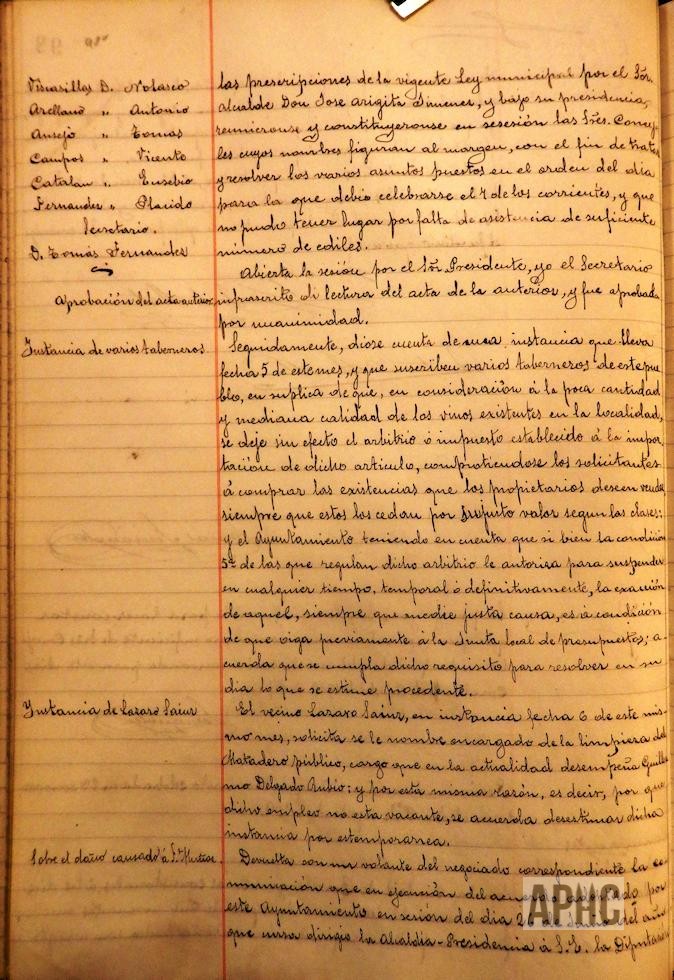 Viscasillas D. Nolasco
Arellano " Antonio
Ansejo " Tomas
Campos " Vicente
Catalan " Eusebio
Fernandez " Placido
Secretario.
D. Tomás Fernandez
las prescripciones de la vigente Ley municipal por el Sór.
alcalde Don Jose arigita Jimenez, y bajo su presidencia,
reunieronse y constituyeronse en sesesión los Sres. Conceja
les cuyos nombres figuran al margen, con el fin de tratar
y resolver los varios asuntos puestos en el orden del dia
para la que debio celebrarse el 4 de los corrientes, y que
no pudo tener lugar por falta de asistencia de suficiente
número de ediles.
Abierta la sesión por el Sór. Presidente, yo el Secretario
Aprobación del acta anterior
infrascrito di lectura del acta de la anterior, y fue aprobada
por unanimidad.
Instancia de varios taberneros
Seguidamente, diose cuenta de una instancia que lleva
fecha 5 de este mes, y que suscriben varios taberneros de este pue
blo, en suplica de que, en consideración á la poca cantidad
y mediana calidad de los vinos existentes en la localidad,
se deje sin efecto el arbitrio ó impuesto establecido á la impor
tación de dicho articulo, comprotiendose los solicitantes
á comprar las existencias que los propietarios deseen vender
siempre que estos los cedan por su justo valor segun las clases:
y el Ayuntamiento teniendo en cuenta que si bien la condición
5ª de las que regulan dicho arbitrio le autoriza para suspender
en cualquier tiempo, temporal ó definitivamente, la exacción
de aquel, siempre que medie justa causa, es á condición
de que oiga previamente á la Junta local de presupuestos; a-
cuerda que se cumpla dicho requisito para resolver en su
dia lo que se estime procedente.
Instancia de Lazaro Sainz
El vecino Lazaro Sainz, en instancia fecha 6 de este mis
mo mes, solicita se le nombre encargado de la limpieza del
Matadero público, cargo que en la actualidad desempeña Guiller
mo Delgado Rubio; y por esta misma razón, es decir, por que
dicho empleo no esta vacante, se acuerda desestimar dicha
instancia por estemporanea.
Sobre el daño causado á
Devuelta con un volante del negociado correspondiente la co-
municación que en ejecución del acuerdo adoptado por
este Ayuntamiento en sesión del dia de del año
que cursa dirigio la Alcaldia-Presidencia á S. E. la Diputación
APHC